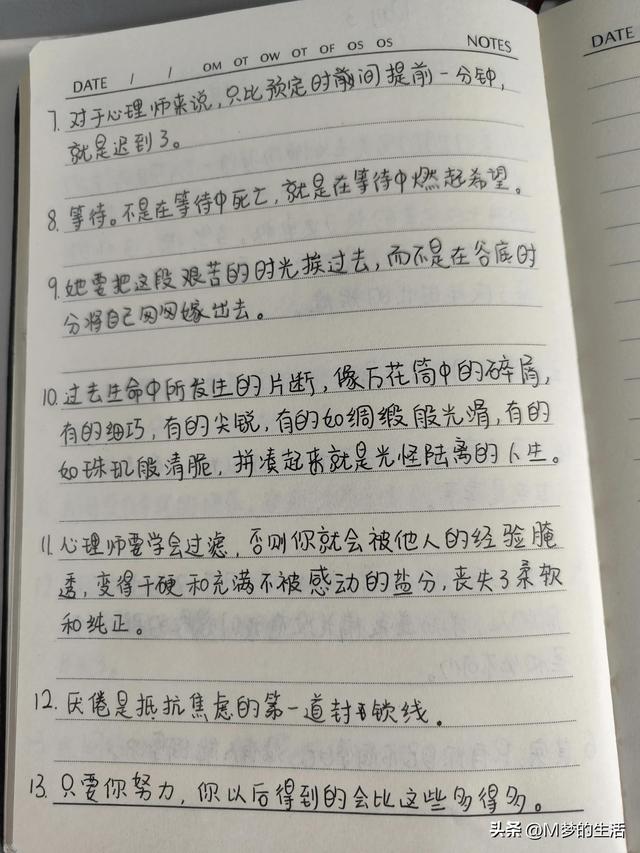 DATE / / OM OT OW OT OF OS OS NOTES
DATE
7. 对于心理师来说，只比预定时间提前一分钟，
就是迟到了。
8. 等待。不是在等待中死亡，就是在等待中燃起希望。
9. 她要把这段艰苦的时光挨过去，而不是在谷底时
分将自己囫囵嫁出去。
10. 过去生命中所发生的片断，像万花筒中的碎屑，
有的细巧，有的尖锐，有的如绸缎般光滑，有的
如珠玑般清脆，拼凑起来就是光怪陆离的人生。
11. 心理师要学会过滤，否则你就会被他人的经验腌
透，变得干硬和充满不被感动的盐分，丧失了柔软
和纯正。
12. 厌倦是抵抗焦虑的第一道封锁线。
13. 只要你努力，你以后得到的会比这些多得多。
头条 @M梦的生活